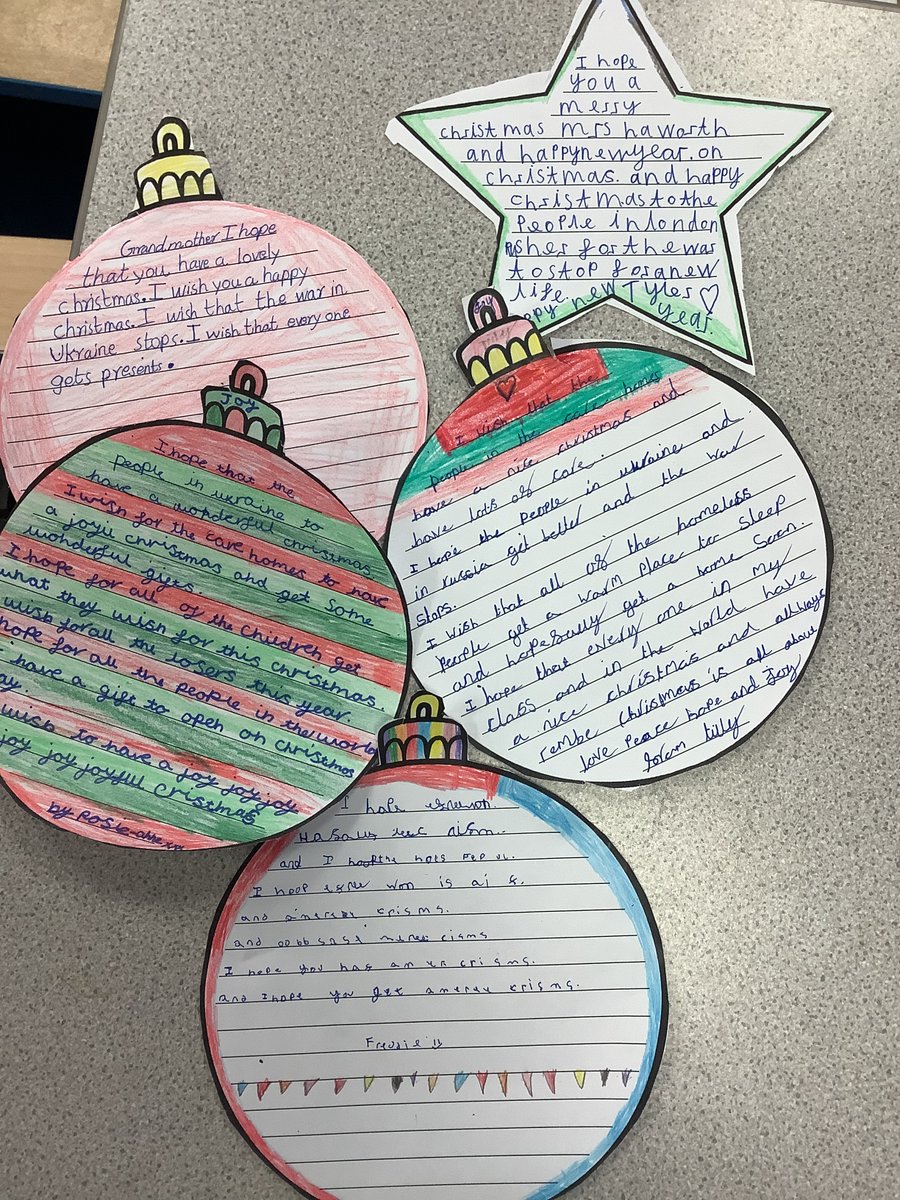 I hope
you a
messy
christmas mrs haworth
and happynewyear. on
christmas. and happy
christmas to the
People in london
shes for the was
to stop for a new
life.
new Tyles ♡
year
Grandmother I hope
that you have a lovely
christmas. I wish you a happy
christmas. I wish that the war in
Ukraine stops. I wish that every one
gets presents.
Joy
I hope that the
people in ukraine to
have a wonderful christmas
I wish for the care homes to have
a joyu christmas and get some
wonderful gifts.
I hope for all of the children get
what they wish for this christmas
wish for all the losors this year.
hope for all the people in the world
have a gift to open on christmas
ay.
wish to have a joy joy joy
joy joy joyful cristmas
by Rosie-
I wish that the
people in the care homes
have a nice christmas and
have lots of care.
I hope the people in ukraine and
in russia git better and the war
stops.
I wish that all of the homeless
people get a warm place to sleep
and hopefully get a home soon.
I hope that every one in my
class and in the world have
a nice christmas and always
rembe christmas is all about
love peace hope and joy
from tilly
I hope
and I the
I hoop won is
and
and
I hope you has an crisms.
and I hope you get ameree krisms.
Freddie